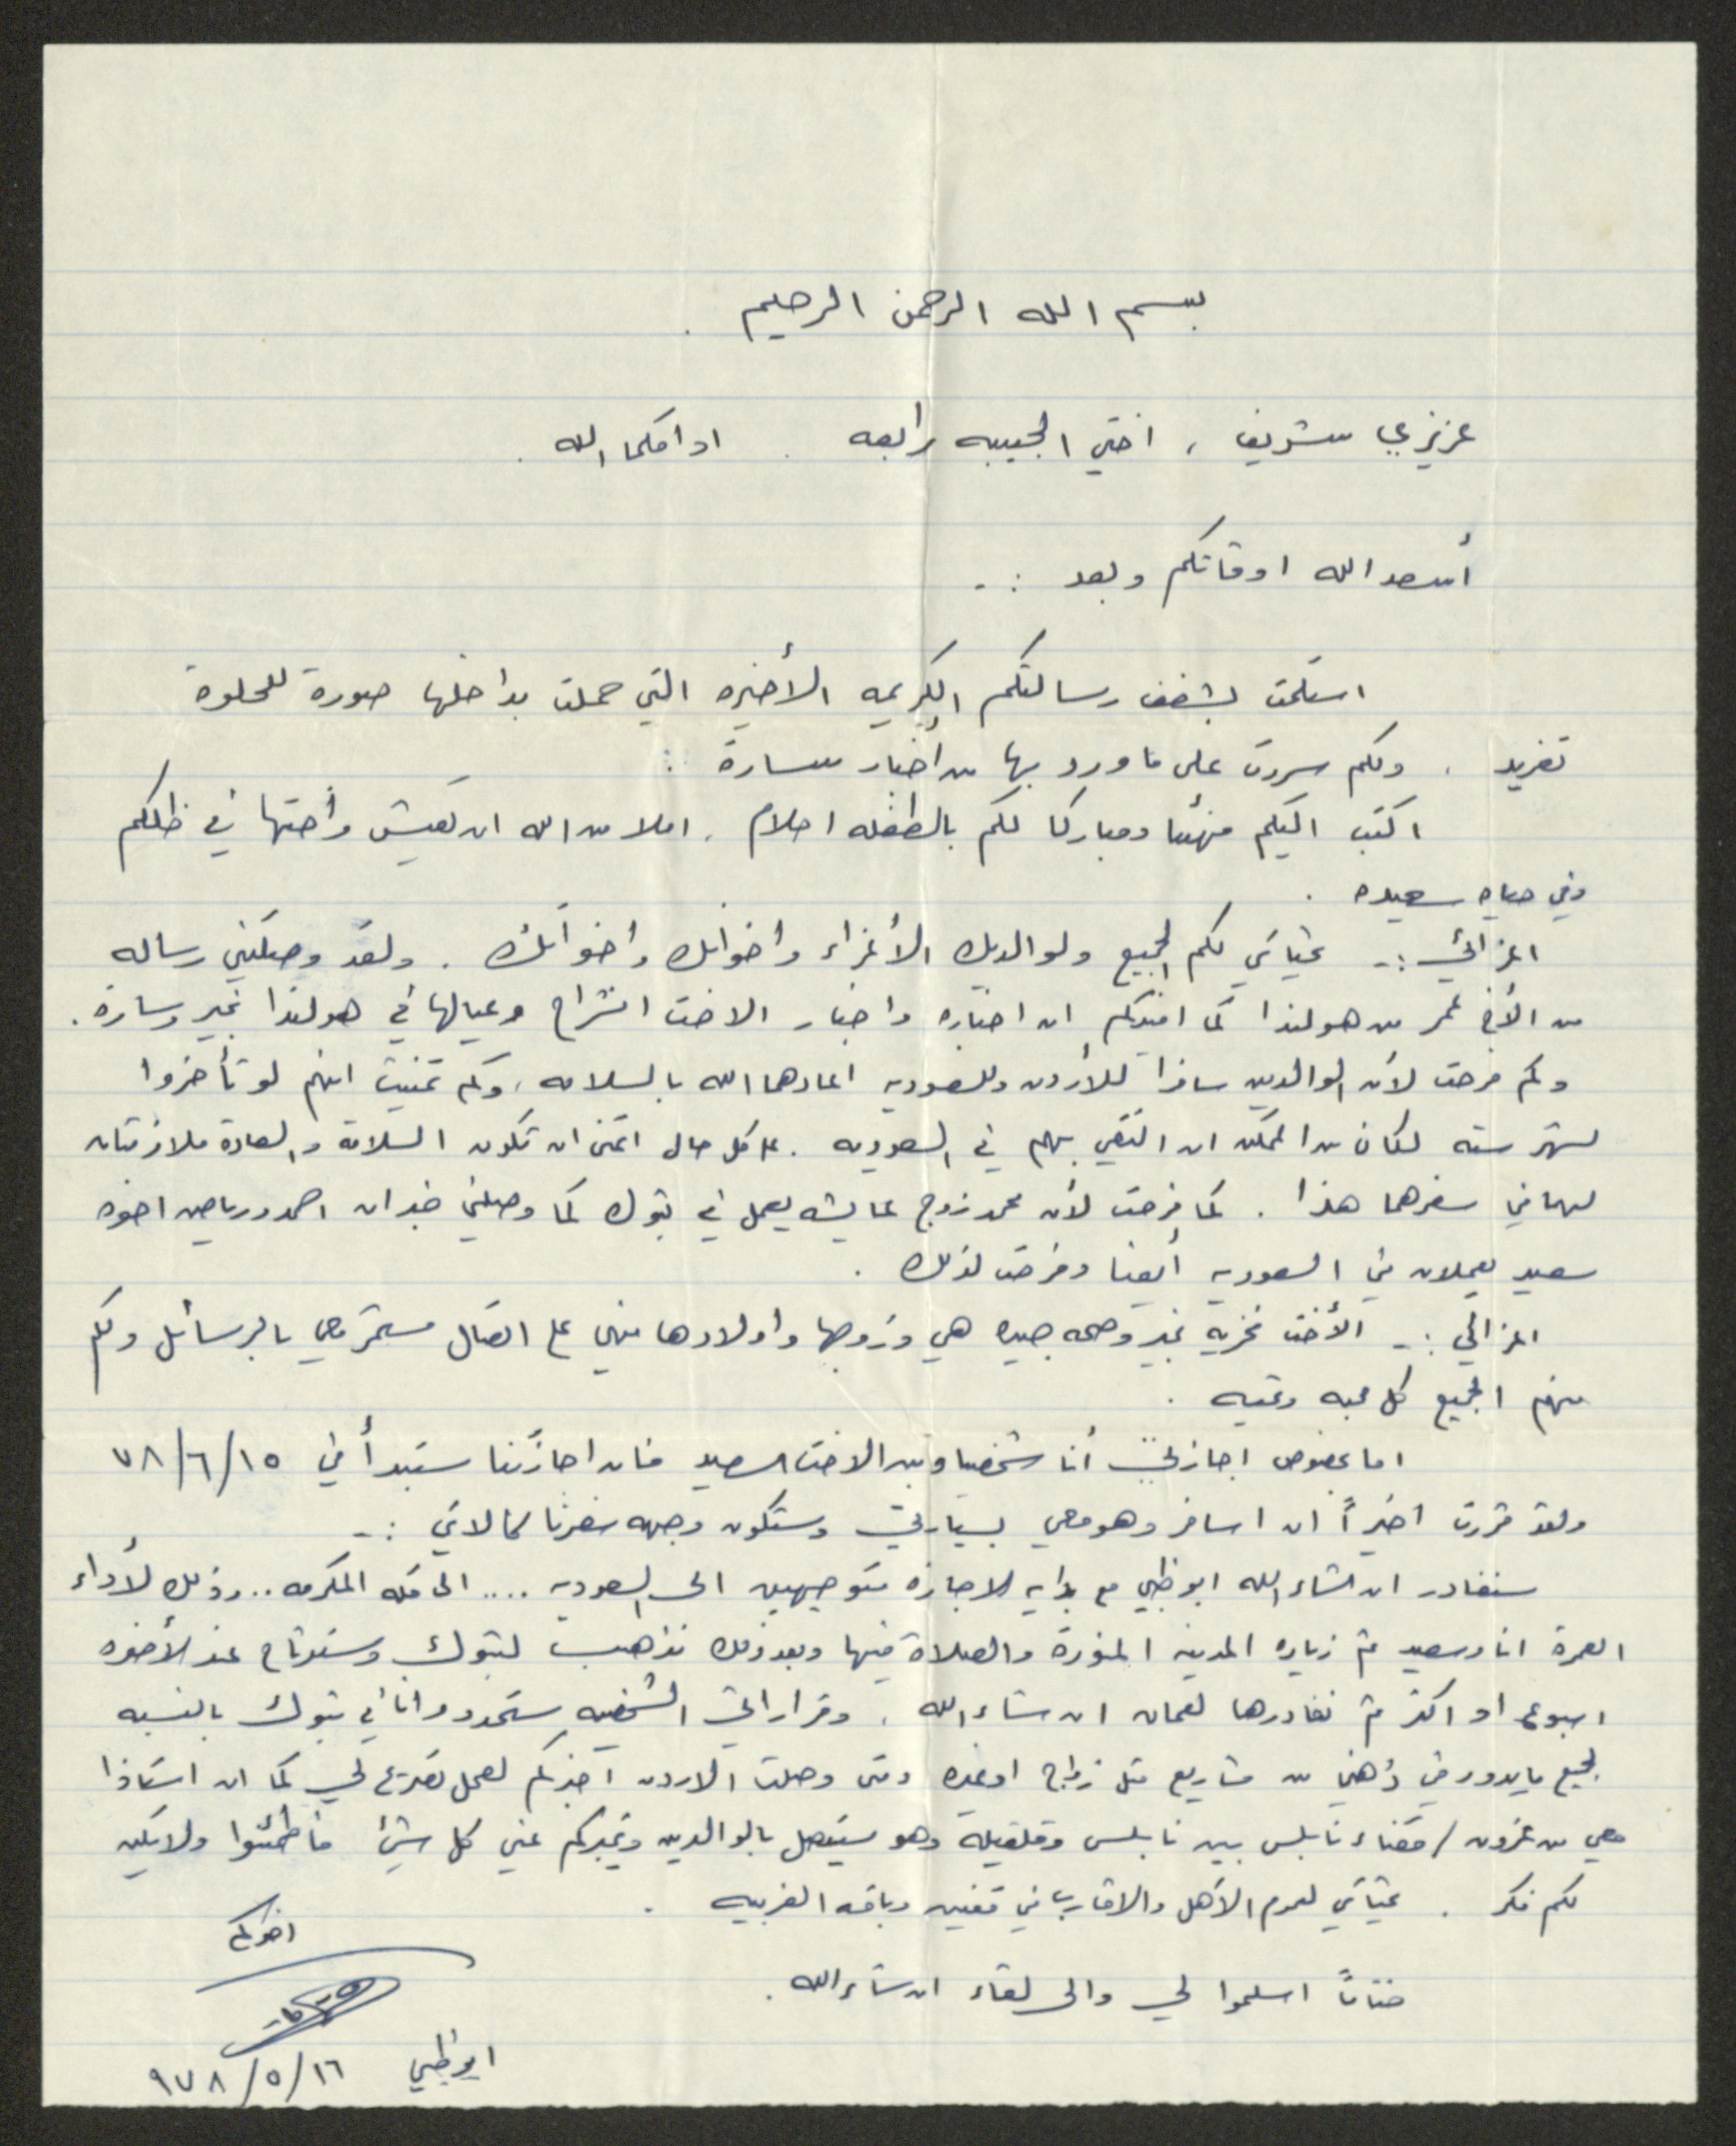 بسم الله الرحمن الرحيم .
عزيزي شريف ، اختي الحبيبه رابعه . ادامكما الله .
أسعد الله اوقاتكم وبعد :-
استلمت بشغف رسالتكم الكريمه الأخيره التي حملت بداخلها صورة للحلوة
تغريد . ولكم سررت على ما ورد بها من أخبار سارة :
اكتب اليكم مهنئا ومباركا لكم بالطفله احلام . املا من الله ان تعيش وأختها في ظلكم
وفي حياه سعيده .
اعزائي :- تحياتي لكم الجميع ولوالديك الأعزاء وأخوانك وأخواتك . ولقد وصلتني رساله
من الأخ عمر من هولندا كما افيدكم ان اخباره واخبار الاخت انشراح وعيالها في هولندا بخير وساره .
وكم فرحت لأن الوالدين سافرا للأردن وللسعوديه اعادهما الله بالسلامه ، وكم تمنيت انهم لو تأخروا
لشهر سته لكان من الممكن ان التقي بهم في السعوديه . على كل حال اتمنى ان تكون السلامة والسعادة ملازمتان
لهما في سفرهما هذا . كما فرحت لأن محمد زوج عايشه يعمل في تبوك كما وصلني خبر ان احمد ورياض اخوه
سعيد يعملان في السعوديه أيضا وفرحت لذلك .
اعزائي :- الأخت فخريه بخير وصحه جيده هي وزوجها واولادها فهي على اتصال مستمر معي بالرسائل ولكم
منهم الجميع كل محبه وتحيه .
اما بخصوص اجازتي أنا شخصيا وابن الاخت سعيد فان اجازتنا ستبدأ في ٧٨/٦/١٥
ولقد قررت اخيراً ان اسافر وهو معي بسيارتي وستكون وجهه سفرنا كالاتي :-
سنغادر ان شاء الله ابوظبي مع بدايه الاجازه متوجهين الى السعوديه .... الى مكه المكرمه .. وذلك لأداء
العمرة انا وسعيد ثم زياره المدينه المنورة والصلاة فيها وبعد ذلك نذهب لتبوك وسنرتاح عند الأخوه
اسبوع او اكثر ثم نغادرها لعمان ان شاء الله . وقراراتي الشخصيه ستحدد وانا في تبوك بالنسبه
لجميع ما يدور في ذهني من مشاريع مثل زواج او غيره ومتى وصلت الاردن اخبركم لعمل تصريح لي كما ان استاذا
معي من عزون / قضاء نابلس بين نابلس وقلقيلة وهو سيتصل بالوالدين ويخبركم عني كل شيئ فاطمئنوا ولا يكن
لكم فكر . تحياتي لعموم الأهل والاقارب في قفين وباقه الغربيه .
ختاماً اسلموا لي والى لقاء ان شاء الله .
اخوكم
ابوظبي ٩٧٨/٥/١٦